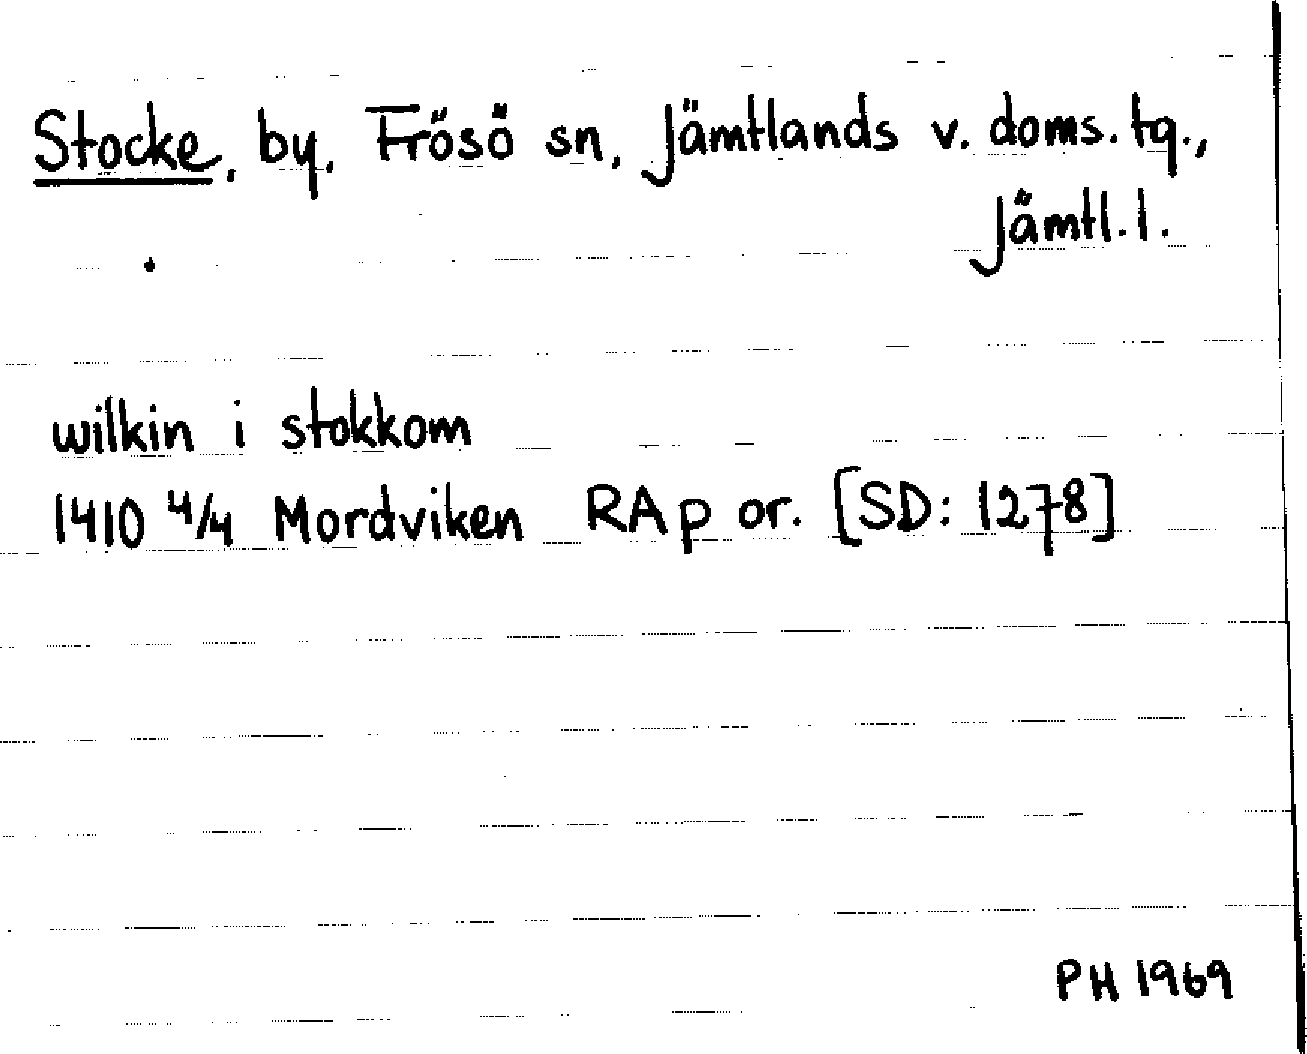 Stocke, by, Frösö sn, Jämtlands v. doms. tg.,
Jämtl. l.
wilkin i stokkom
1410 4/4 Mordviken RA p or. [SD: 1278]
PH 1969